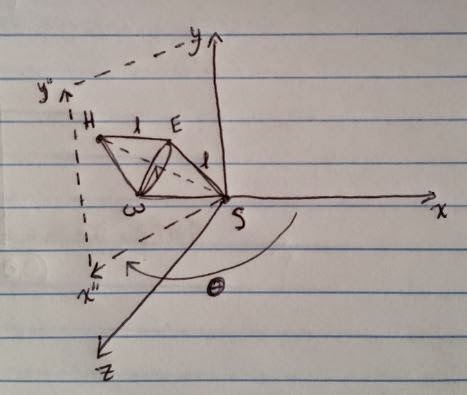 y
y"
H
l
E
l
ω
S
x
x"
Θ
z